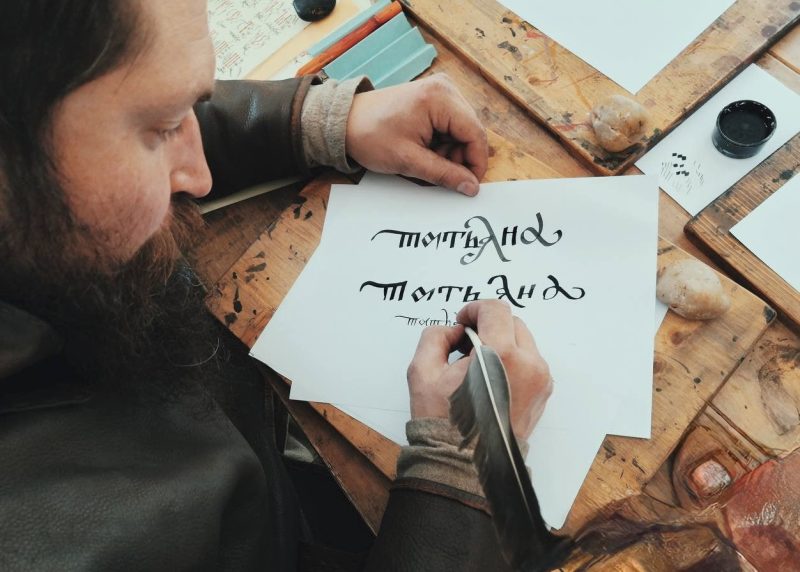 татьяна
татьяна
тать